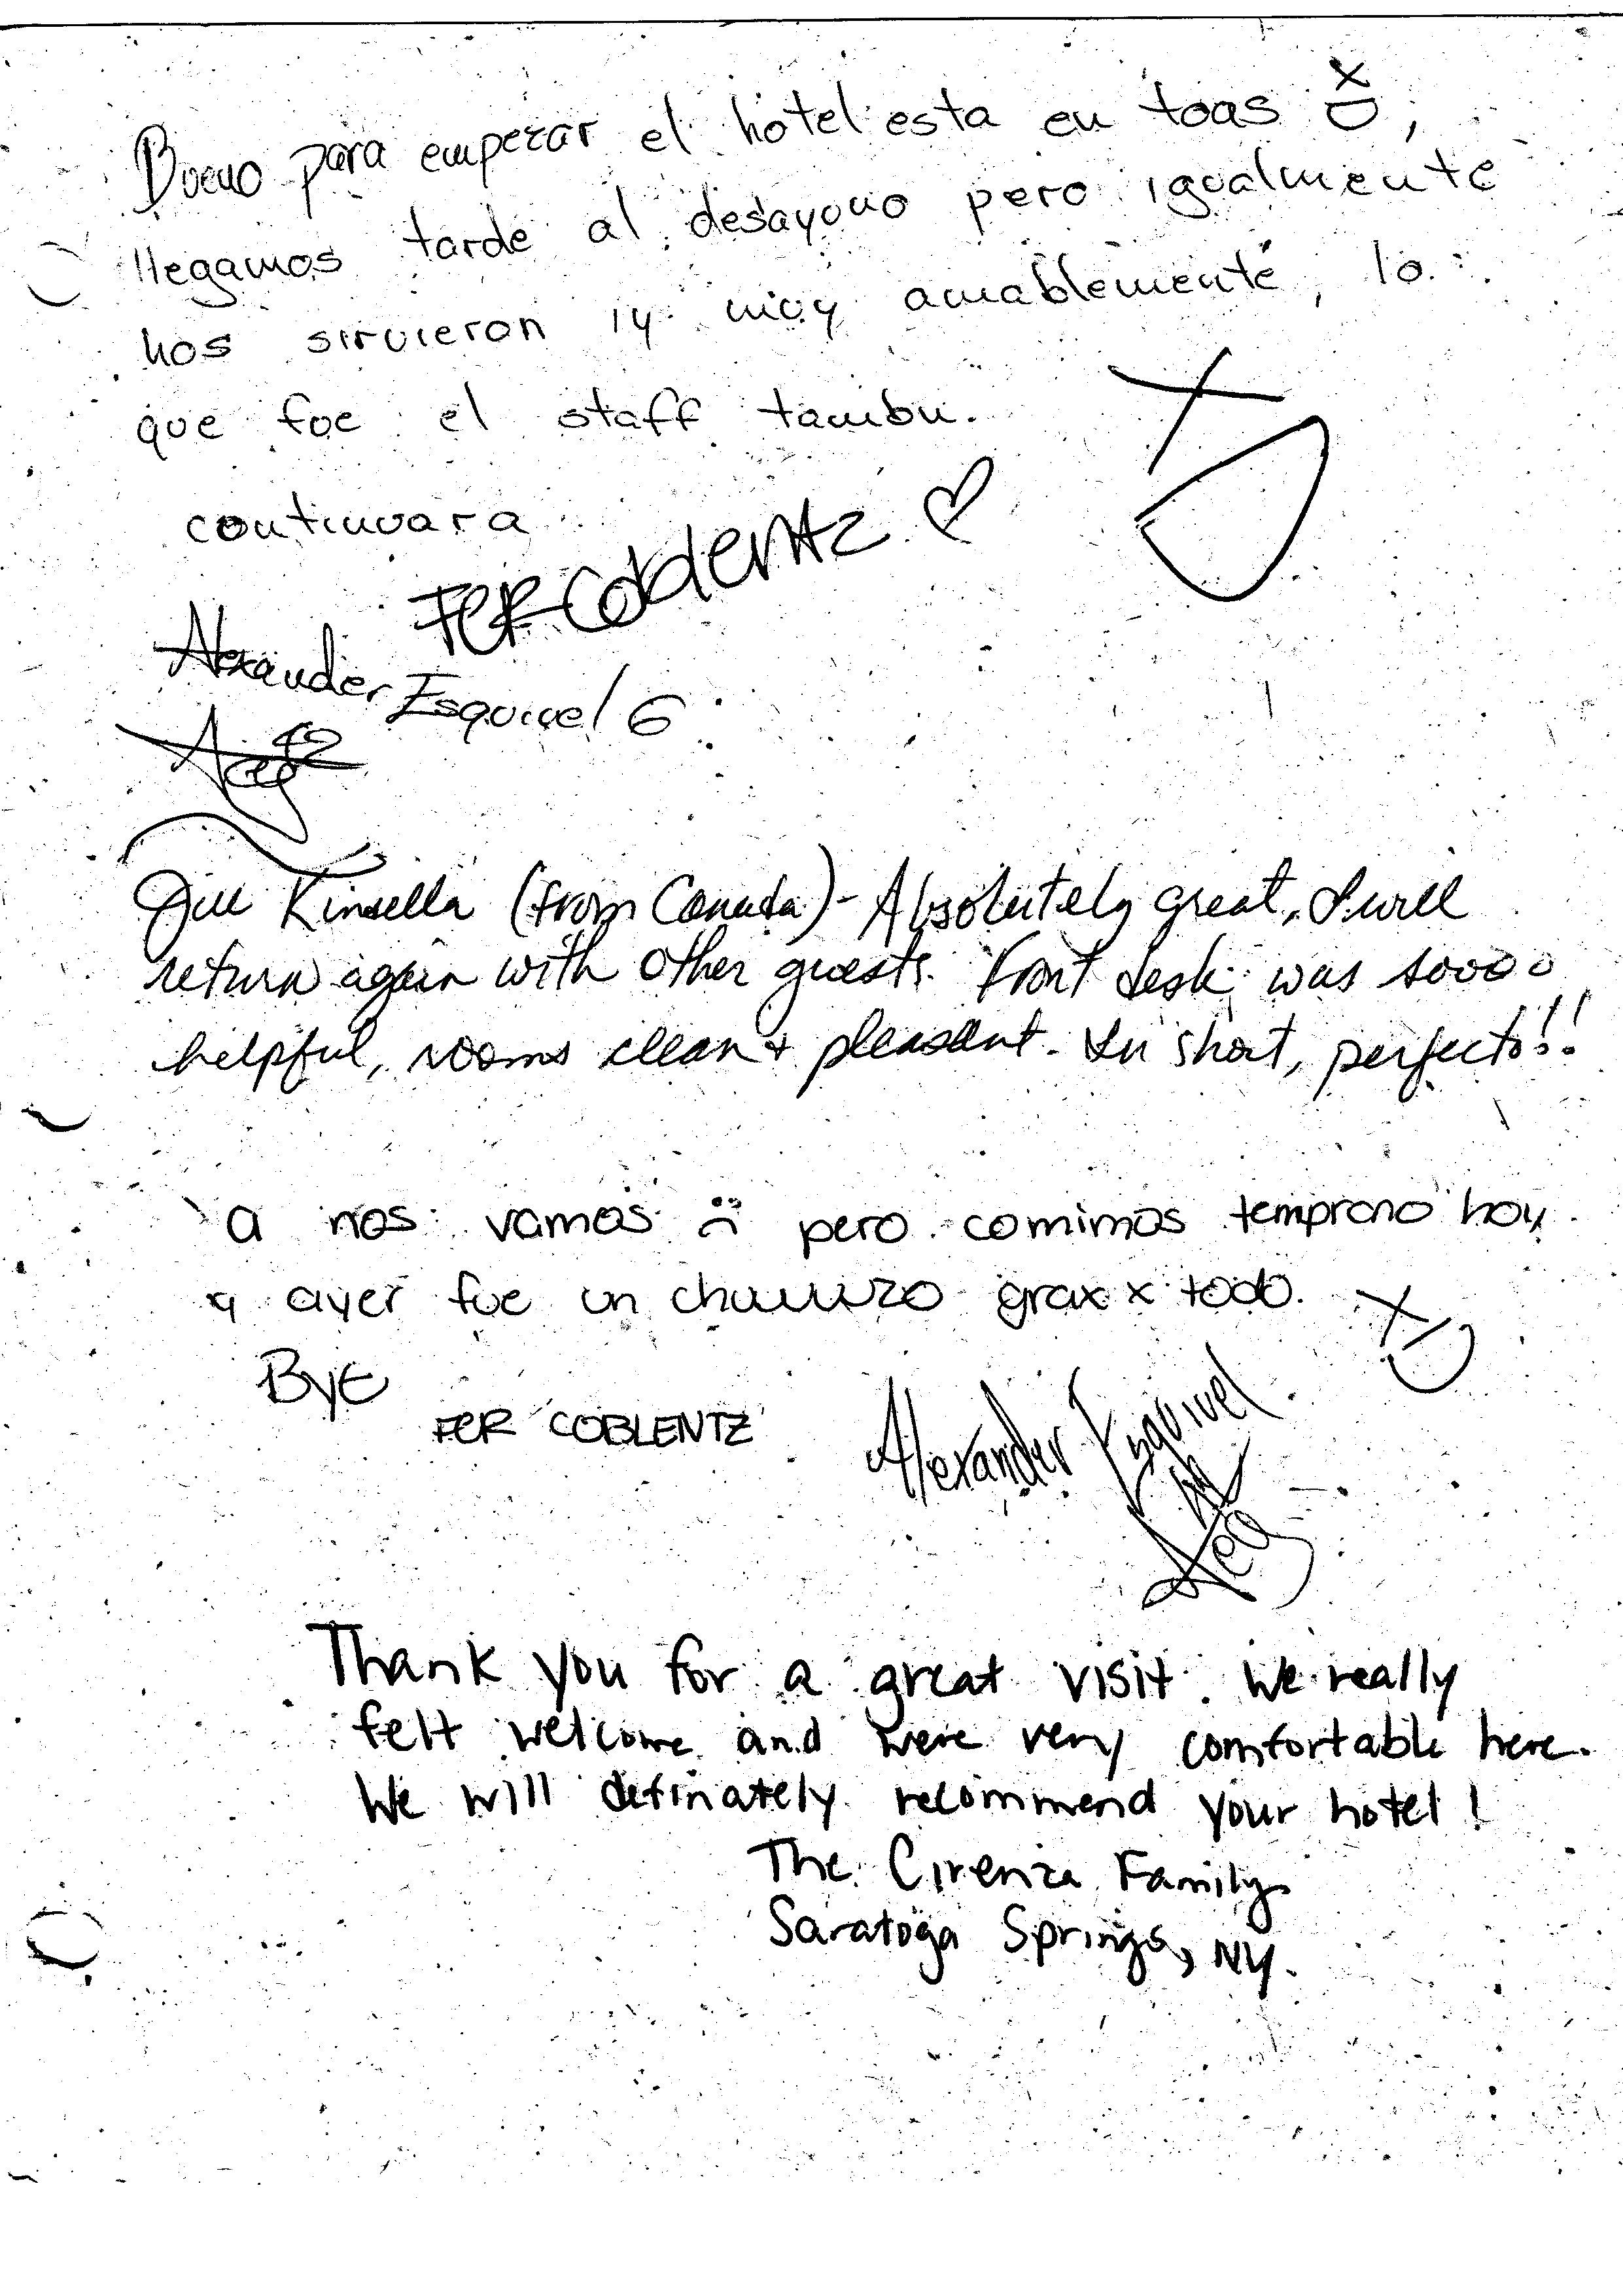 Bueno para empezar el hotel esta en toas XD,
llegamos tarde al desayuno pero igualmente
nos sirvieron y muy amablemente, lo
que fue el staff tambn.
continuara
FER COBlENTZ
Alexander Esquivel G
Jill Kinsella (from Canada) - Absolutely great, I will
return again with other guests. Front desk was soooo
helpful, rooms clean + pleasant. In short, perfecto!!
Ya nos vamos :( pero comimos temprano hoy
y ayer fue un chuuuzo grax x todo. XD
BYE
FER COBLENTZ
Alexander Esquivel
Thank you for a great visit. We really
felt welcome and were very comfortable here.
We will definately recommend your hotel!
The Cirenza Family
Saratoga Springs, NY.